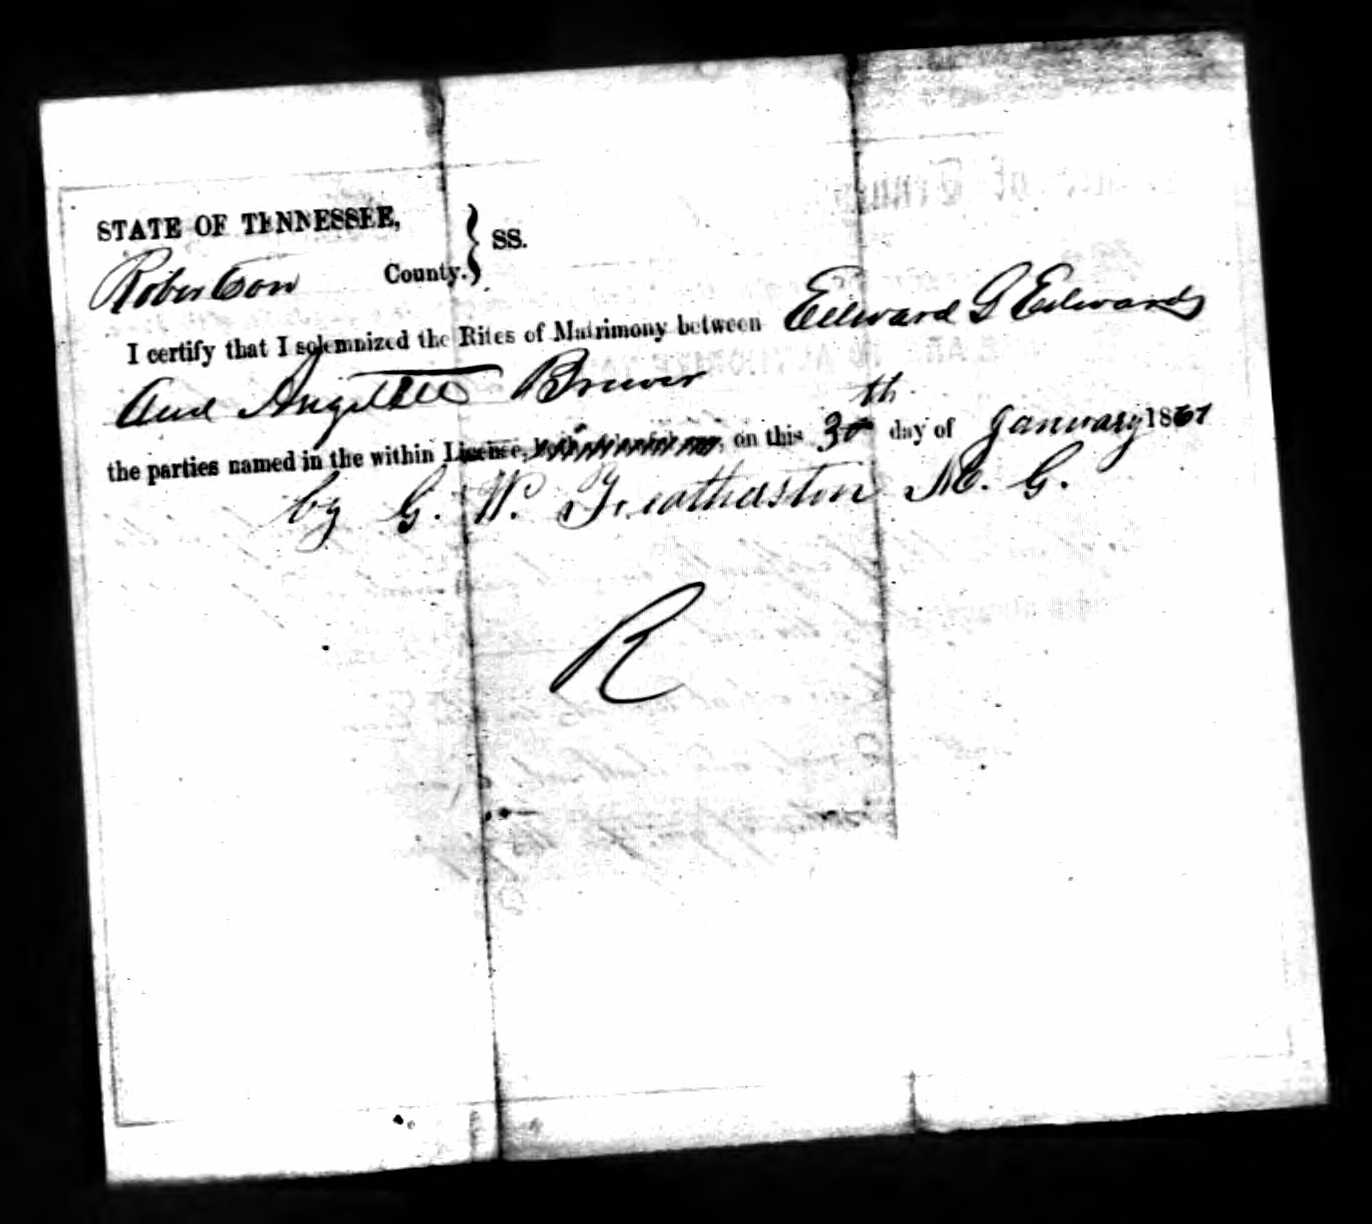 STATE OF TENNESSEE, } SS.
Robertson County.
I certify that I solemnized the Rites of Matrimony between Edward G Edwards
and Brewer
the parties named in the within Licence, on this 30th day of January 1861
by G. W. Featherston M. G.
R